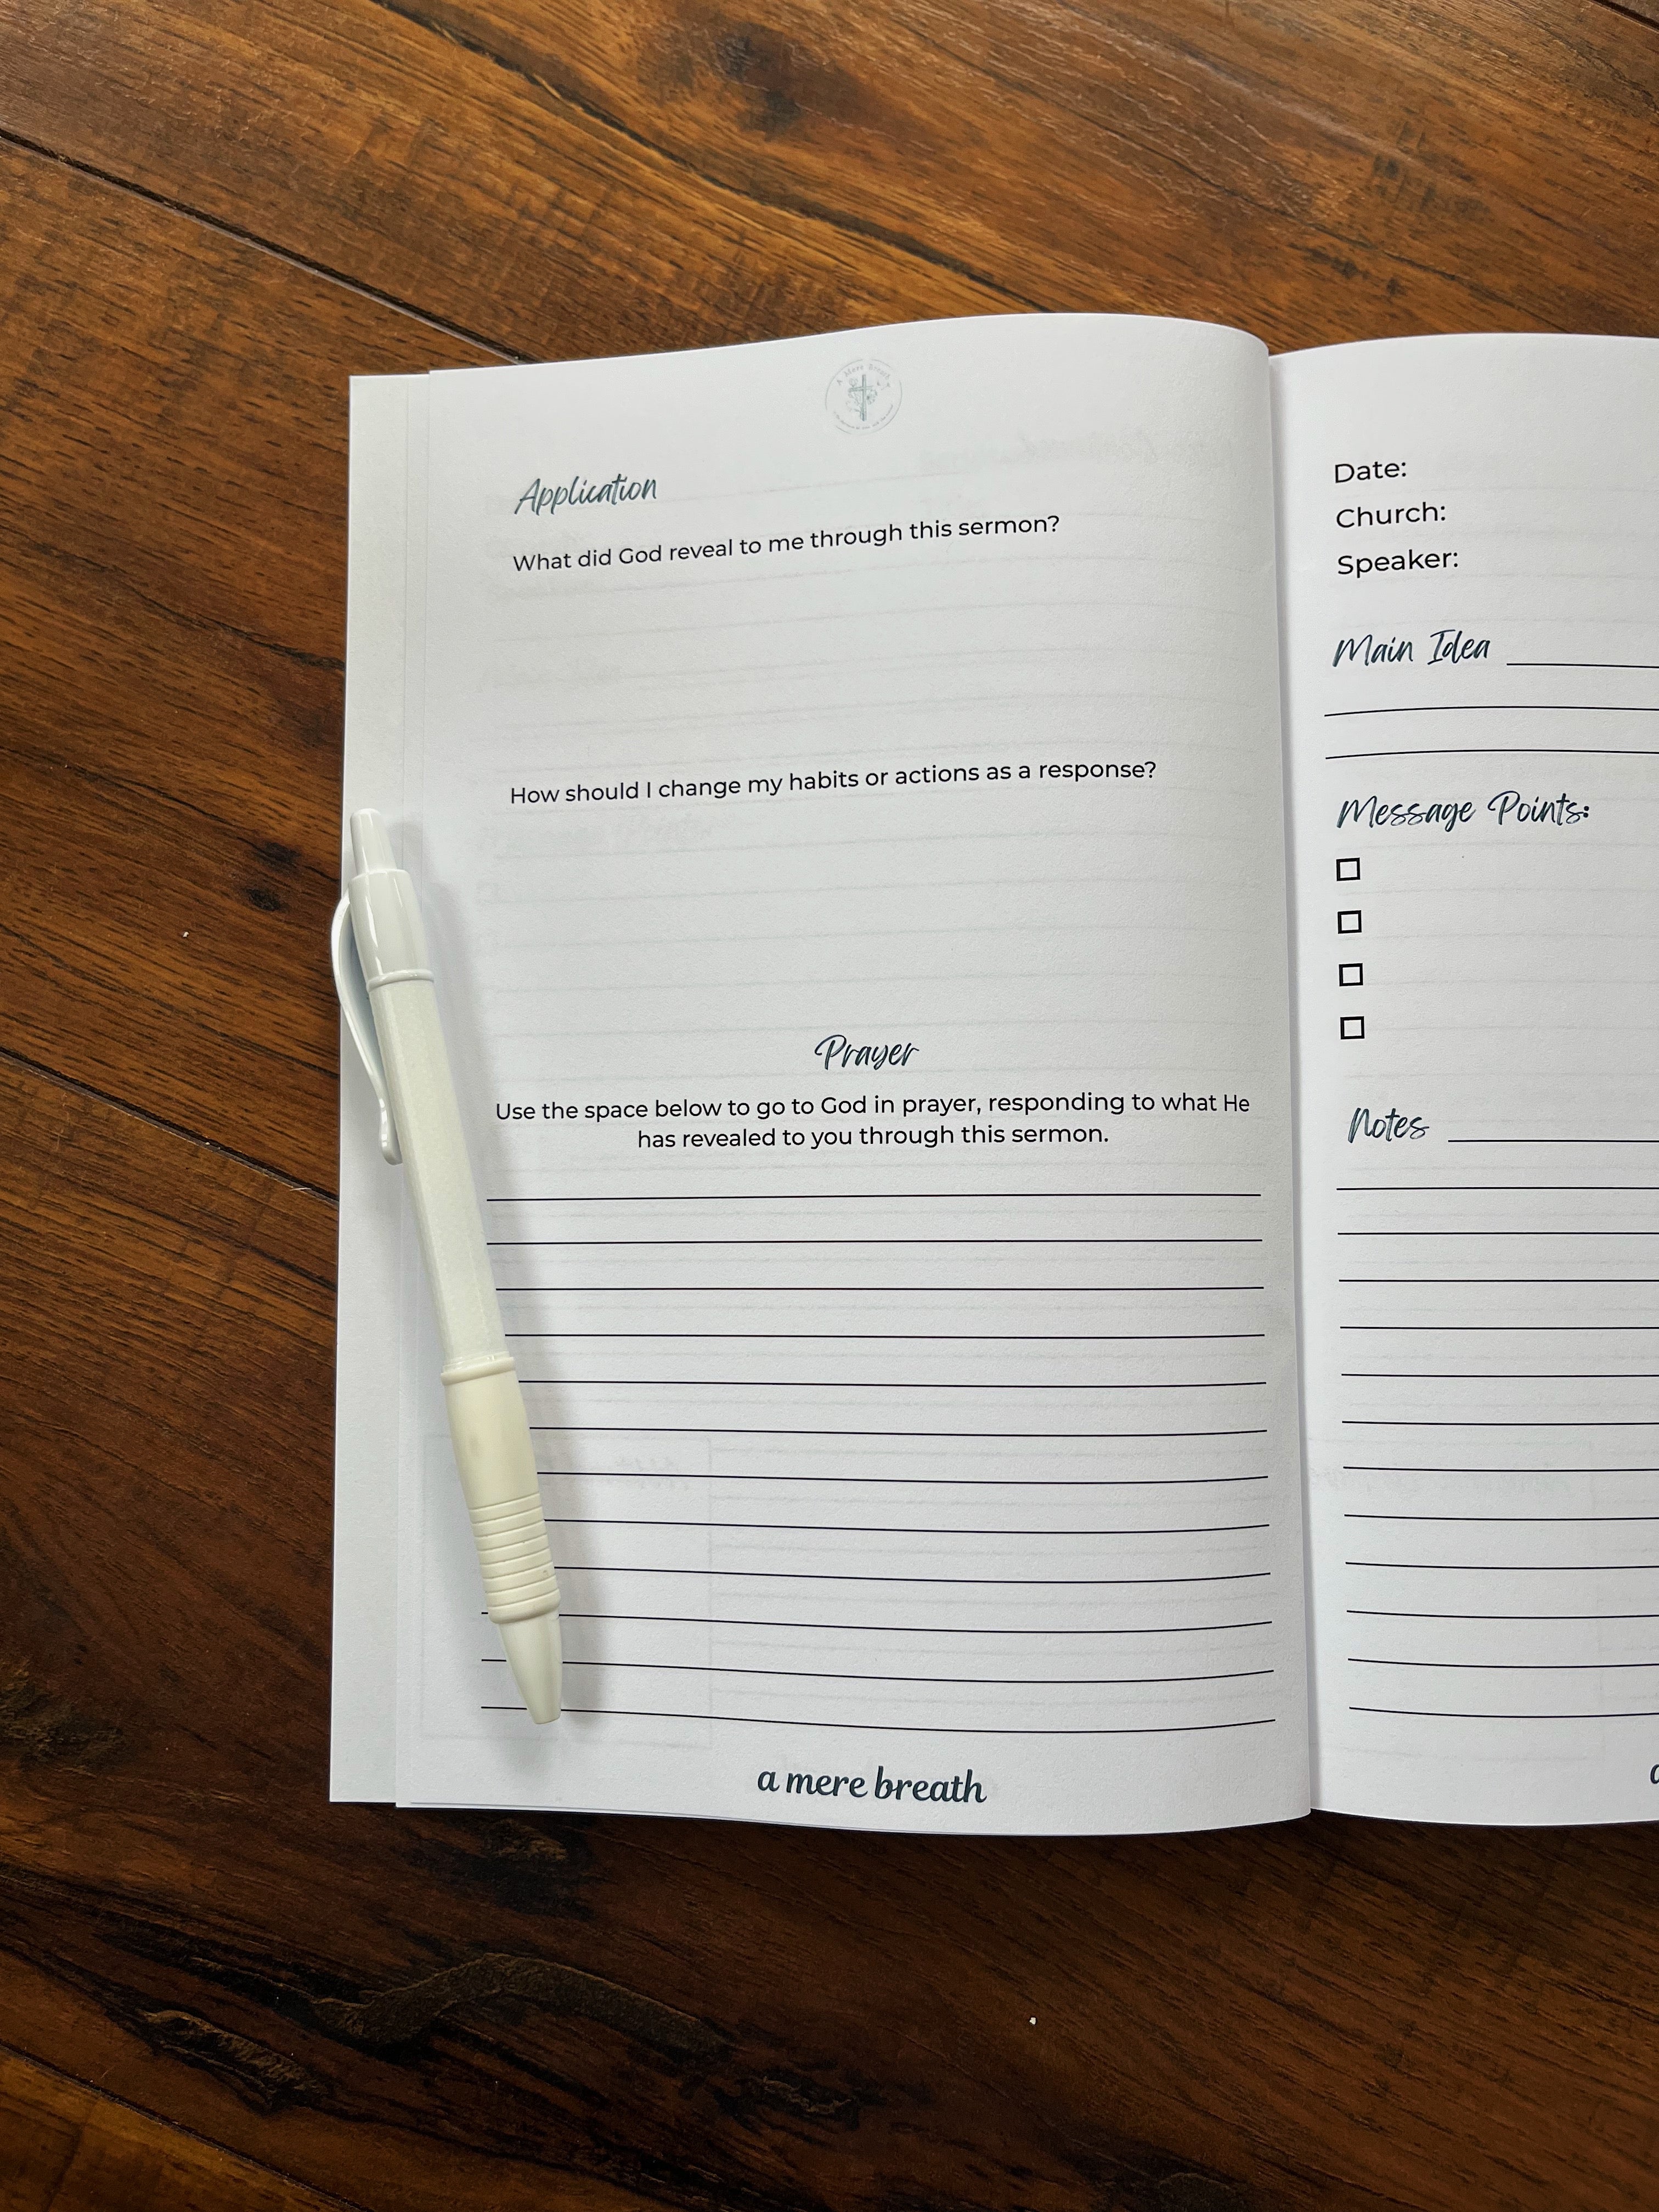 A Mere Breath
Application
What did God reveal to me through this sermon?
How should I change my habits or actions as a response?
Prayer
Use the space below to go to God in prayer, responding to what He
has revealed to you through this sermon.
a mere breath
Date:
Church:
Speaker:
Main Idea
Message Points:
Notes
a